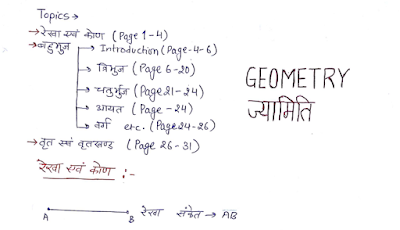 Topics →
→ रेखा एवं कोण (Page 1-4)
→ बहुभुज → Introduction (Page-4-6)
→ त्रिभुज (Page 6-20)
→ चतुर्भुज (Page 21-24)
→ आयत (Page -24)
→ वर्ग etc. (Page 24-26)
→ वृत एवं वृतखण्ड (Page 26-31)
GEOMETRY
ज्यामिति
रेखा एवं कोण :-
A B रेखा संकेत → AB